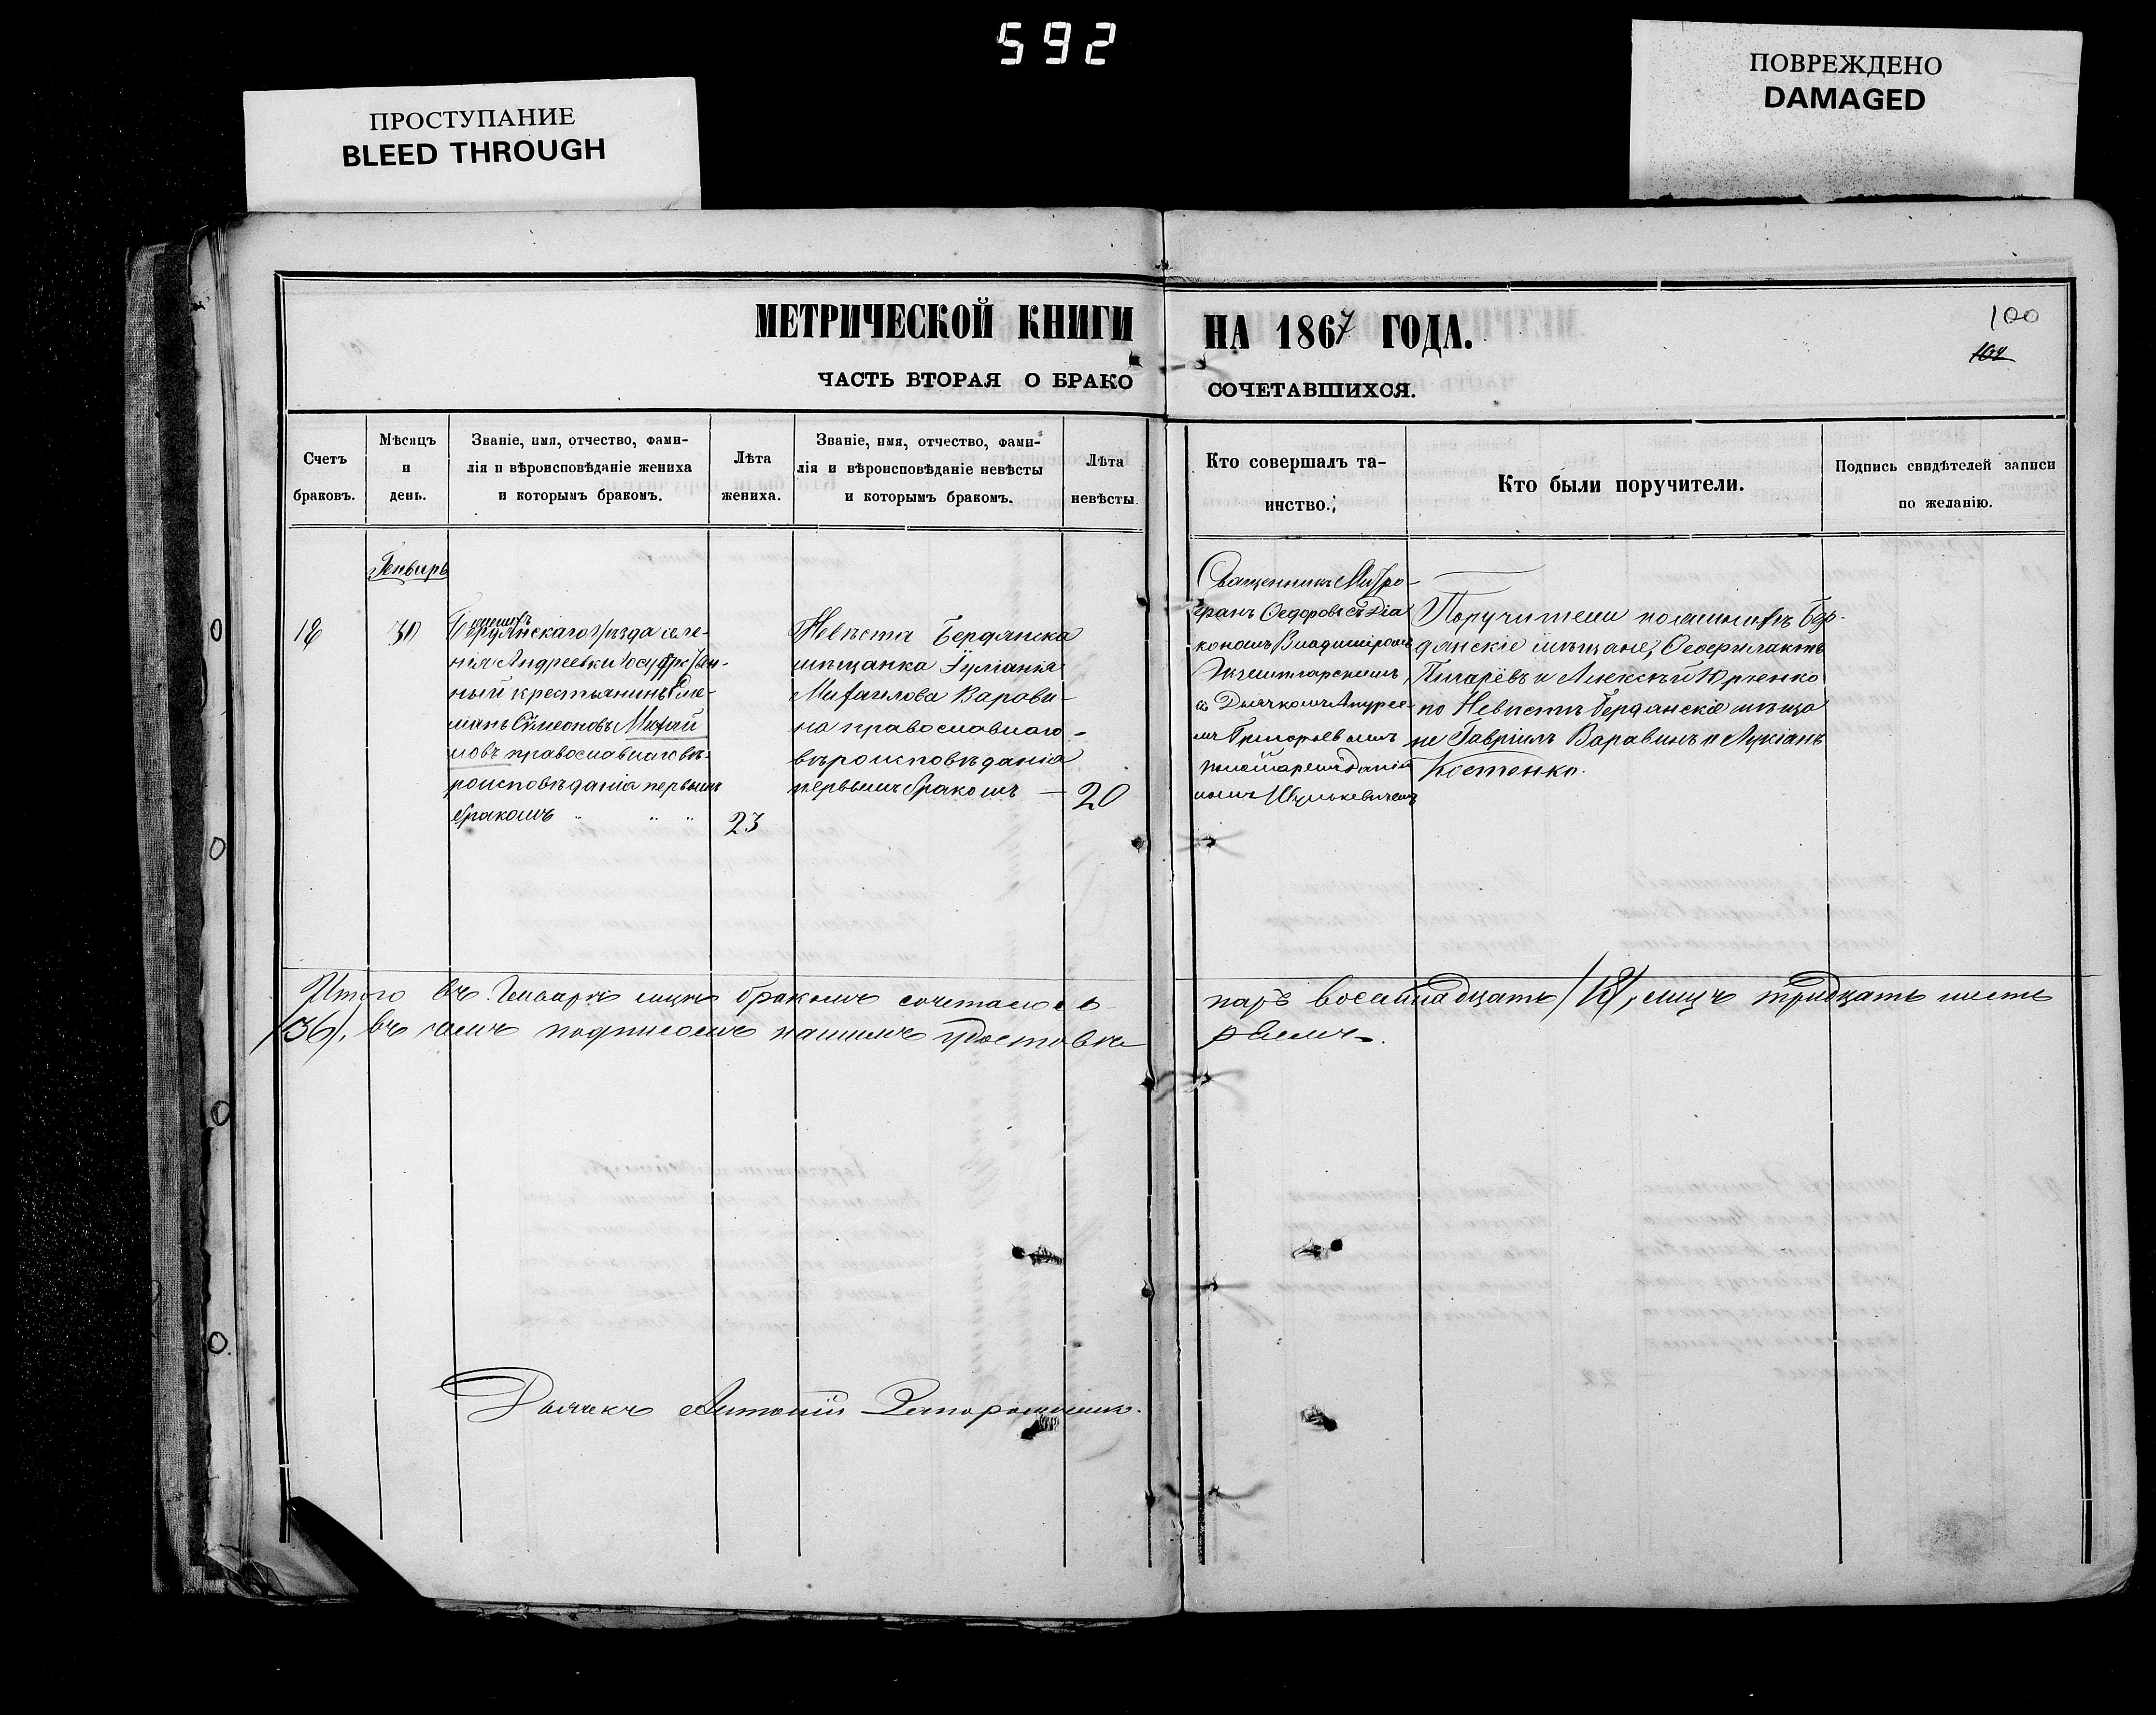 592
ПРОСТУПАНИЕ
BLEED THROUGH
ПОВРЕЖДЕНО
DAMAGED
МЕТРИЧЕСКОЙ КНИГИ НА 1867 ГОДА.
100
102
ЧАСТЬ ВТОРАЯ О БРАКО СОЧЕТАВШИХСЯ.
Счетъ
браковъ.
Мѣсяцъ
и
день.
Званіе, имя, отчество, фами-
лія и вѣроисповѣданіе жениха
и которымъ бракомъ.
Лѣта
жениха.
Званіе, имя, отчество, фами-
лія и вѣроисповѣданіе невѣсты
и которымъ бракомъ.
Лѣта
невѣсты.
Кто совершалъ та-
инство.
Кто были поручители.
Подпись свидѣтелей записи
по желанію.
Генварь
18
30
Бердянскаго уѣзда селе-
нія Андреевки Государствен-
ный крестьянинъ Еме-
ліанъ Сѵмеоновъ Михай
ловъ православнаго вѣ-
роисповѣданія первымъ
бракомъ
23
Невѣста Бердянска
мѣщанка Іуліанія
Михаилова Варави-
на православнаго
вѣроисповѣданія
первымъ бракомъ
20
Священникъ Митро-
фанъ Ѳедоровъ съ Діа
кономъ Владиміромъ
съ Дьячкомъ
Григорьевымъ
пономаремъ
Поручители по женихѣ Бер-
дянскіе мѣщане, Ѳеофилактъ
Писарёвъ и Алексѣй Юрченко
по Невѣстѣ Бердянскіе мѣща
не Гавріилъ Варавинъ и Лукіанъ
Костенко.
Итого въ Генварѣ мцѣ бракомъ сочеталось паръ восемнадцать (18), лицъ тридцать шесть
(36), въ чемъ подписомъ нашимъ удостовѣ ряемъ.
Дьячекъ Антоній